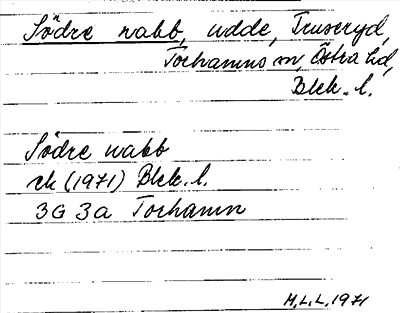 Södre nabb, udde, Truseryd,
Torhamns sn Östra hd,
Blek. l.
Södre nabb
ek (1971) Blek. l.
3G 3a Torhamn
H.L.L. 1971